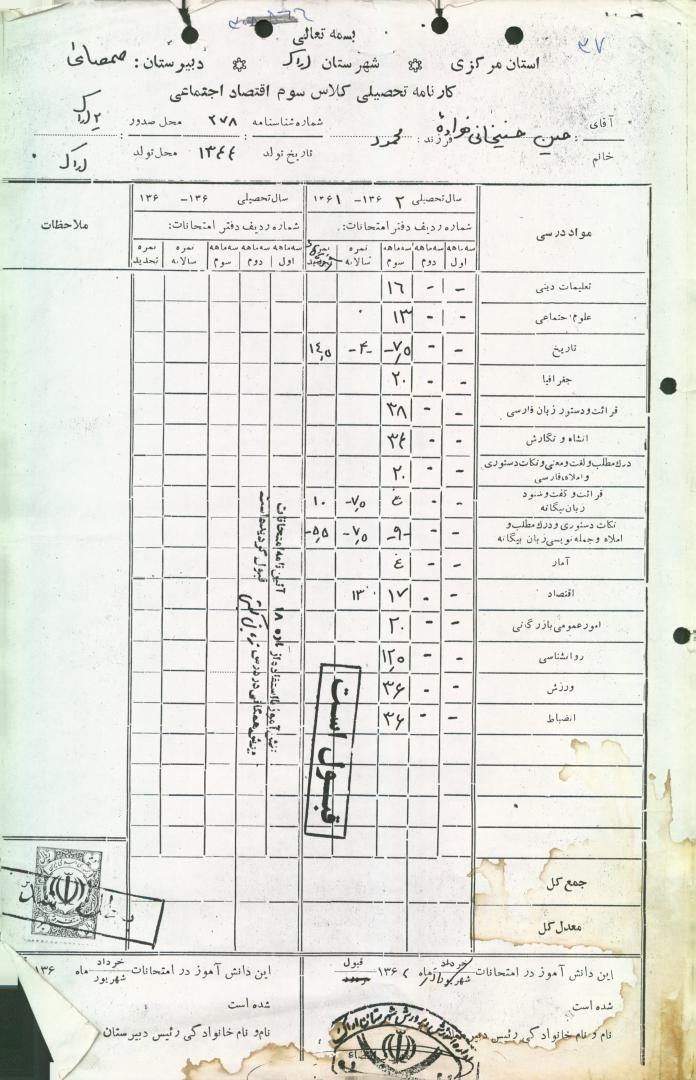 ۳۷
بسمه تعالی
استان مرکزی شهرستان اراک دبیرستان: صمصامی
کارنامه تحصیلی کلاس سوم اقتصاد اجتماعی
آقای
خانم
: حسین
فرزند: محمود
شماره شناسنامه : ۲۷۸ محل صدور : اراک
تاریخ تولد ۱۳۴۴ محل تولد : اراک
مواد درسی
سال تحصیلی ۲ ۱۳۶- ۱ ۱۳۶
سال تحصیلی ۱۳۶- ۱۳۶
ملاحظات
شماره ردیف دفتر امتحانات:
شماره ردیف دفتر امتحانات:
سه ماهه اول سه ماهه دوم سه ماهه سوم نمره سالانه
سه ماهه اول سه ماهه دوم سه ماهه سوم نمره سالانه نمره تجدید
تعلیمات دینی - - ۱۶
علوم اجتماعی - - ۱۳
تاریخ - - ۷/۵ -۴- ۱۴/۵
جغرافیا - - ۲۰
قرائت و دستور زبان فارسی - - ۳۸
انشاء و نگارش - - ۳۴
درک مطلب و لغت و معنی و نکات دستوری
و املاء فارسی - - ۲۰
قرائت و گفت و شنود
زبان بیگانه - - ۴ ۷/۵- ۱۰
نکات دستوری و درک مطلب و
املاء و جمله نویسی زبان بیگانه - - -۹- ۷/۵- ۵/۵-
آمار - - ۴
اقتصاد - - ۱۷ ۱۳
امور عمومی بازرگانی - - ۲۰
روانشناسی - - ۱۲/۵
ورزش - - ۳۶
انضباط - - ۳۶
دانش آموز با استفاده از ماده ۱۸ آئین نامه امتحانات
در درس قبول گردیده است
قبول است
جمع کل
معدل کل
باطل شد
این دانش آموز در امتحانات خرداد شهریور ماه ۱۳۶۲ قبول مردود
شده است
نام و نام خانوادگی رئیس دبیرستان
این دانش آموز در امتحانات خرداد شهریور ماه ۱۳۶
شده است
نام و نام خانوادگی رئیس دبیرستان
اداره آموزش و پرورش شهرستان اراک